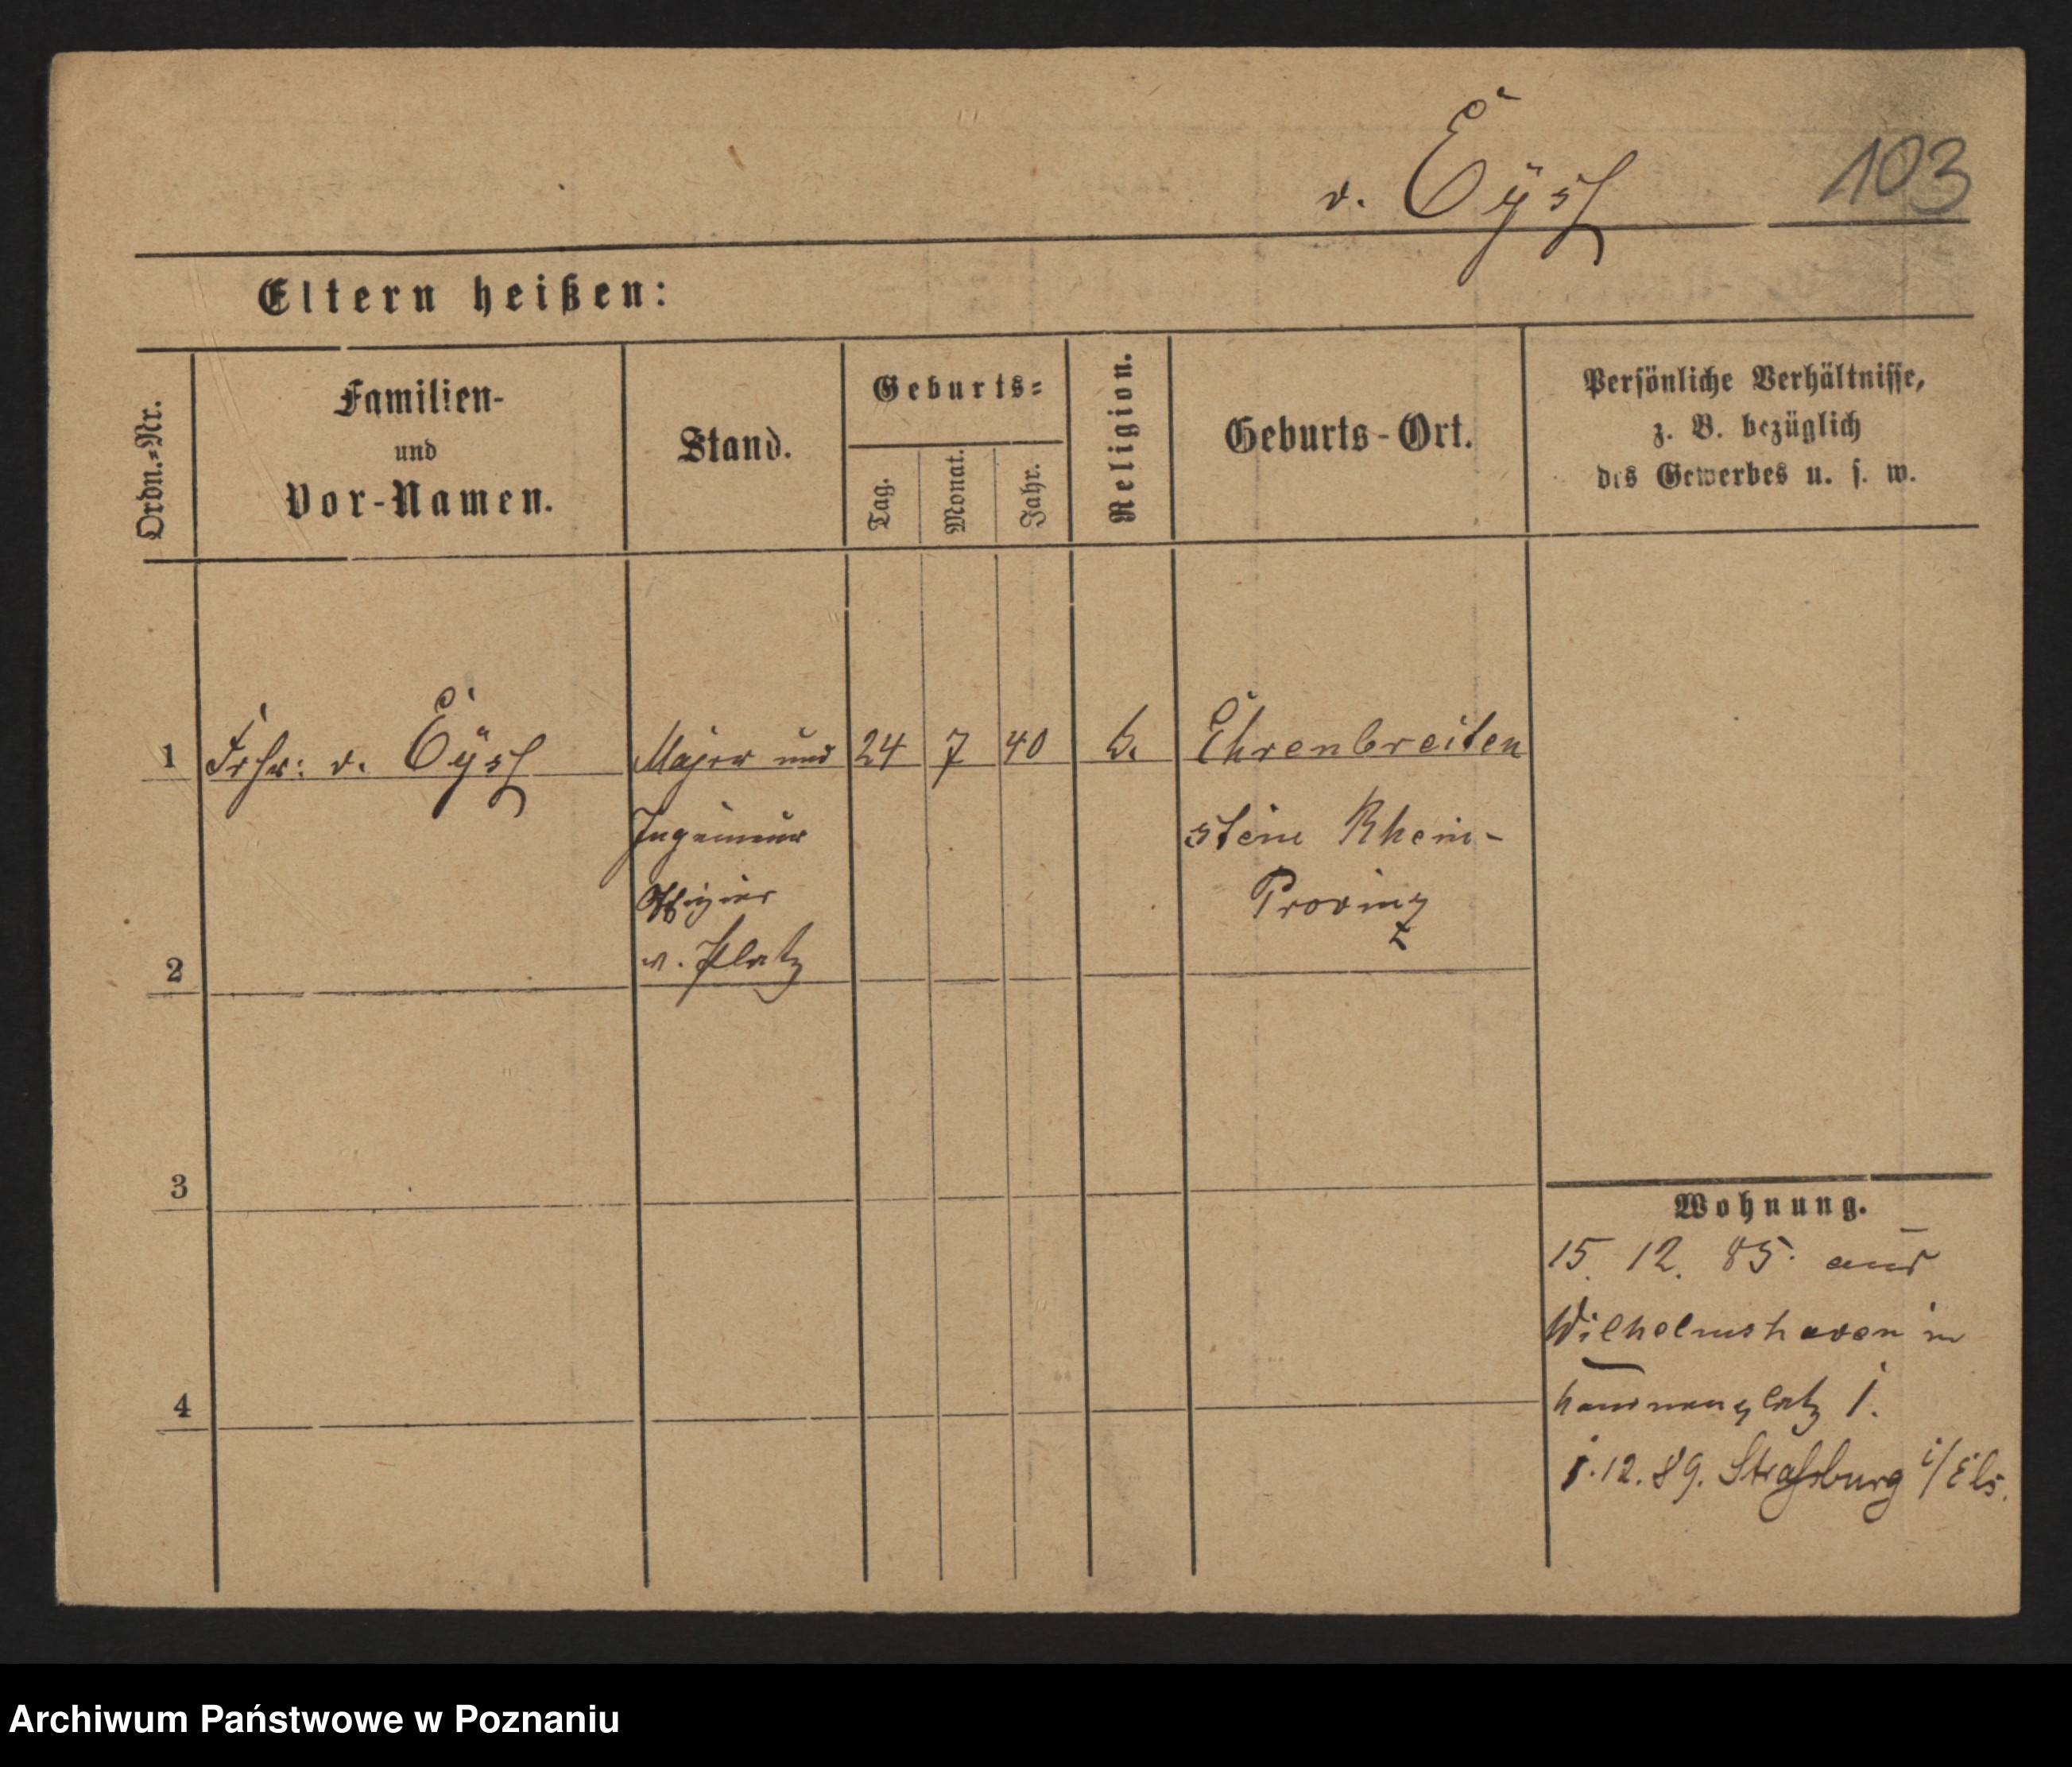 v. Eÿß
103
Eltern heißen:
Ordn.=Nr.
Familien-
und
Vor-Namen.
Stand.
Geburts=
Tag.
Monat.
Jahr.
Religion.
Geburts-Ort.
Persönliche Verhältnisse,
z. B. bezüglich
des Gewerbes u. s. w.
1
Frhr: v. Eÿß
Major und
24
7
40
Ehrenbreiten
Ingenieur
stein Rhein-
Offizier
Provinz
z
v. Platz
2
3
4
Wohnung.
15. 12. 85. aus
Wilhelmshaven in
Kanonenplatz 1.
1. 12. 89. Straßburg i/Els.
Archiwum Państwowe w Poznaniu